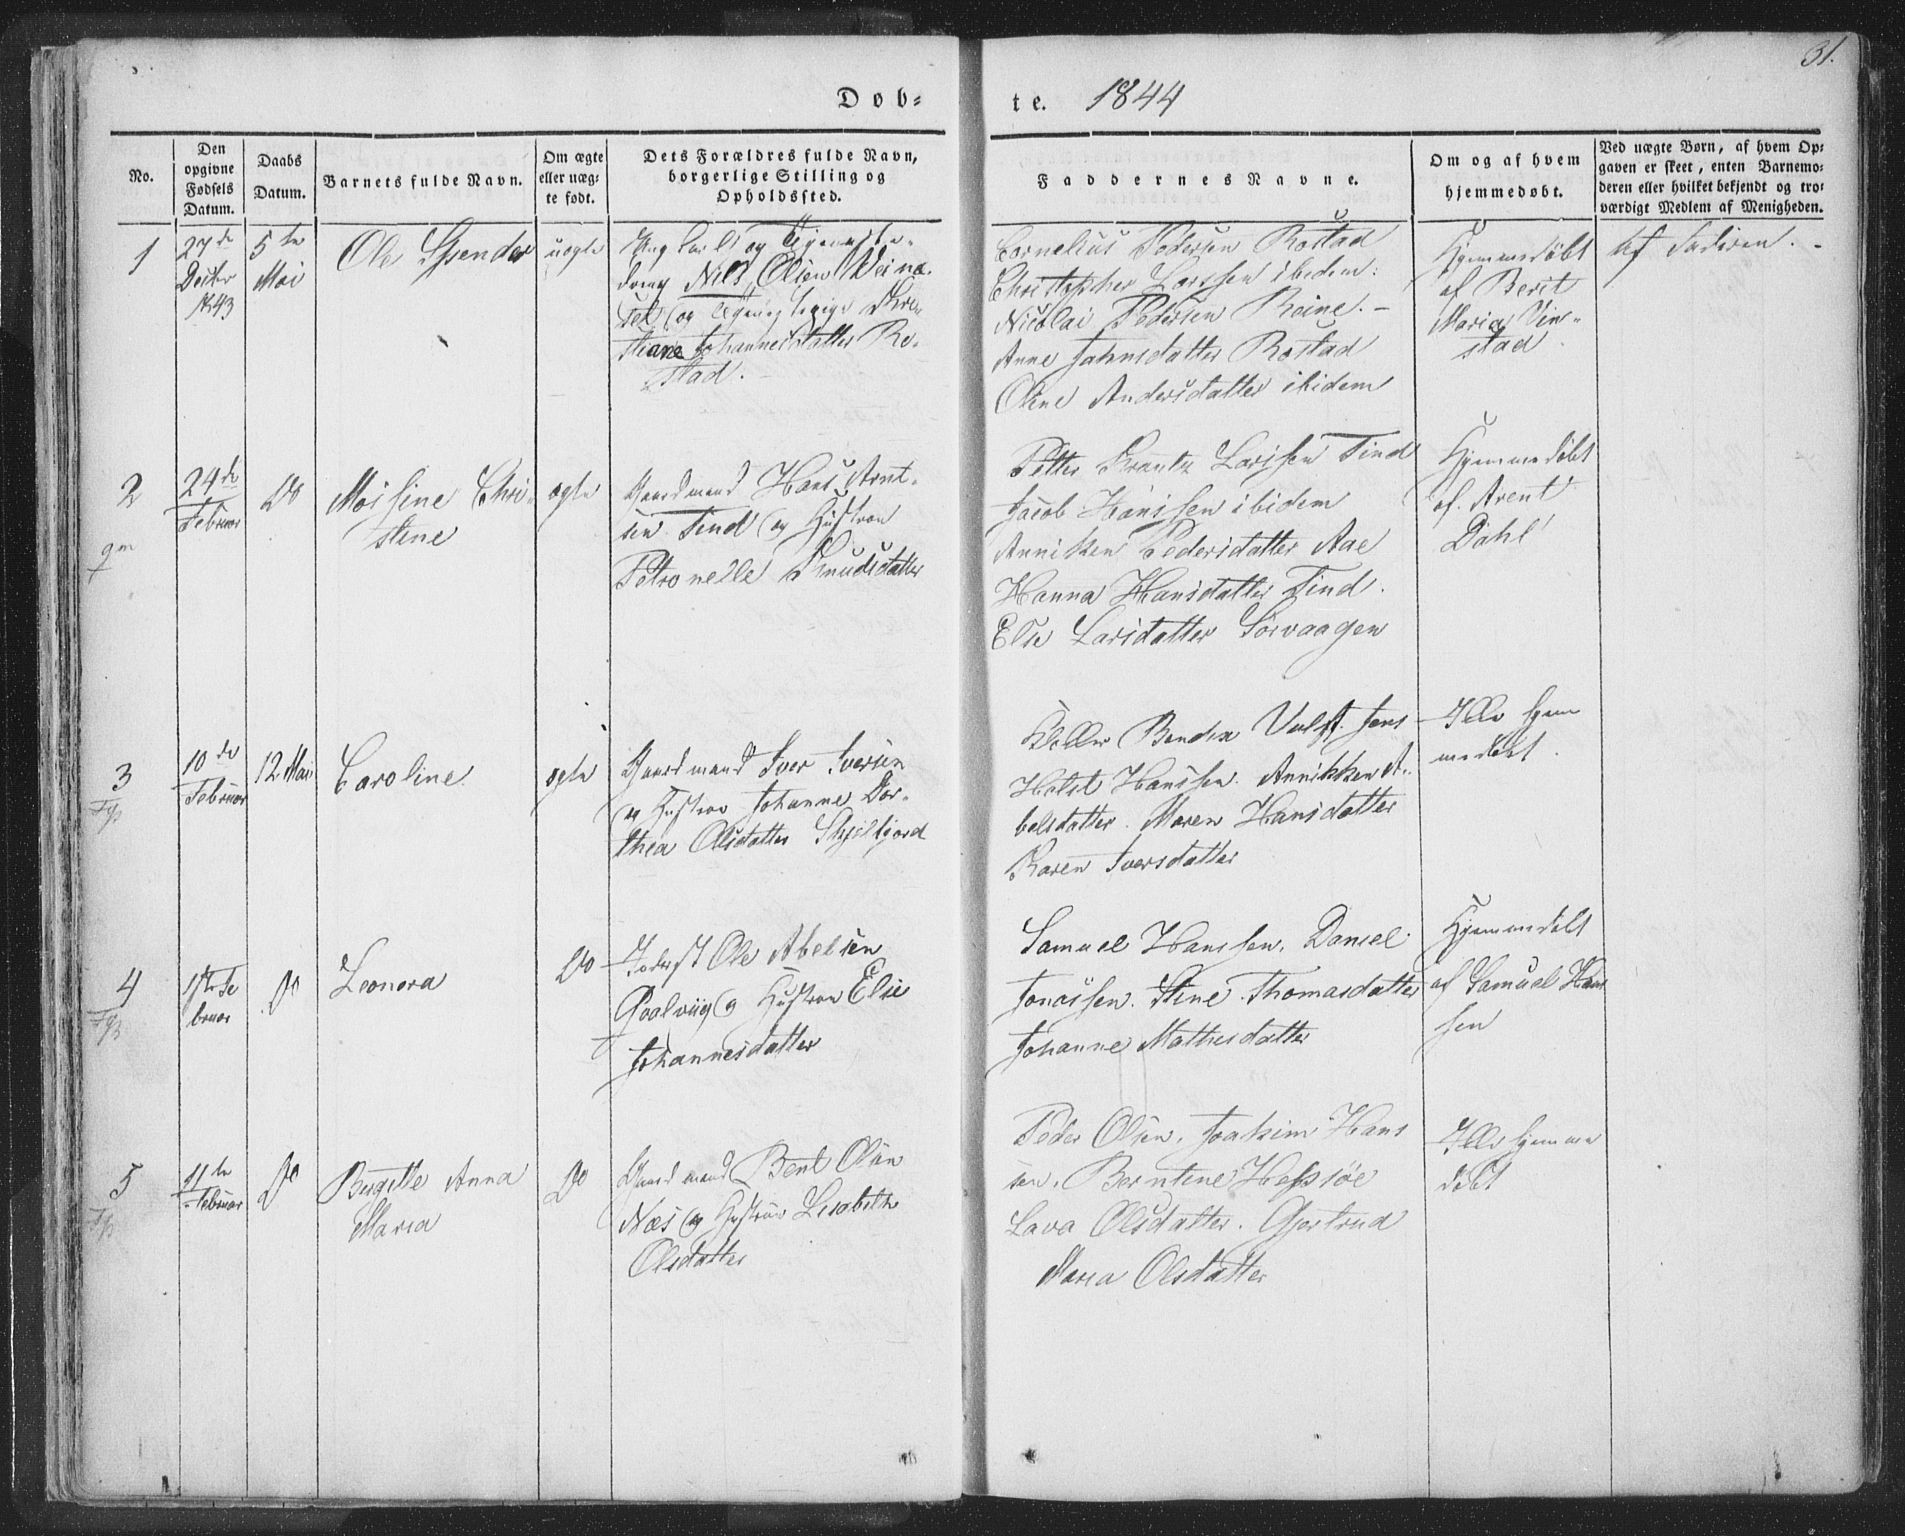 31.
Dob=
te. 1844
No.
Den opgivne Fødsels Datum.
Daabs Datum.
Barnets fulde Navn.
Om ægte eller uægte født.
Dets Forældres fulde Navn, borgerlige Stilling og Opholdssted.
Faddernes Navne.
Om og af hvem hjemmedøbt.
Ved uægte Børn, af hvem Op=
gaven er skeet, enten Barnemo=
deren eller hvilket bekjendt og tro=
værdigt Medlem af Menigheden.
1
27de
Decbr
1843
5te
Mai
Ole
uægte
Ungkarl og
Nils Olsen
og
Johannesdatter Ro-
stad.
Cornelius Pedersen Rostad
Christopher Larssen ibidem:
Nicolai Pedersen Reine. -
Anne Jahnsdatter Rostad
Oline Andersdatter ibidem
Hjemmedøbt
af Berit
Maria Vin-
stad
Af Faderen. -
2
24de
Februar
Do
Mossine Chri-
stine
ægte
Gaardmand Hans Arnt-
sen Tind og Hustroe
Petronelle Knudsdatter
Petter Krantz Larssen Tind
Jacob Hanssen ibidem
Anniken Pedersdatter Aae
Hanna Hansdatter Tind.
Else Larsdatter Sørvaagen
Hjemmedøbt
af Arent
Dahl
3
10de
Februar
12 Mai
Caroline
ægte
Gaardmand Iver Iversen
og Hustroe Johanne Dor-
thea Olsdatter Skjelfjord
Bendix Jens
Holst Hanssen. Annikken A-
belsdatter. Maren Hansdatter
Karen Iversdatter
Ikke hjem
medøbt.
4
bruar
Do
Leonora
Do
Ole Abelsen
og Hustroe Else
Johannesdatter
Samuel Hanssen. Daniel
Jonassen. Stine Thomasdatter
Johanne Mathisdatter
Hjemmedøbt
af Samuel Hans
sen
5
11te
Februar
Do
Birgitte Anna
Maria
Do
Gaardmand Bent Olsen
Næs og Hustroe Lisabeth
Olsdatter
Peder Olsen. Joakim Hans
sen. Berntine Hessøe
Lava Olsdatter. Gjertrud
Maria Olsdatter
Ikke hjemme
døbt